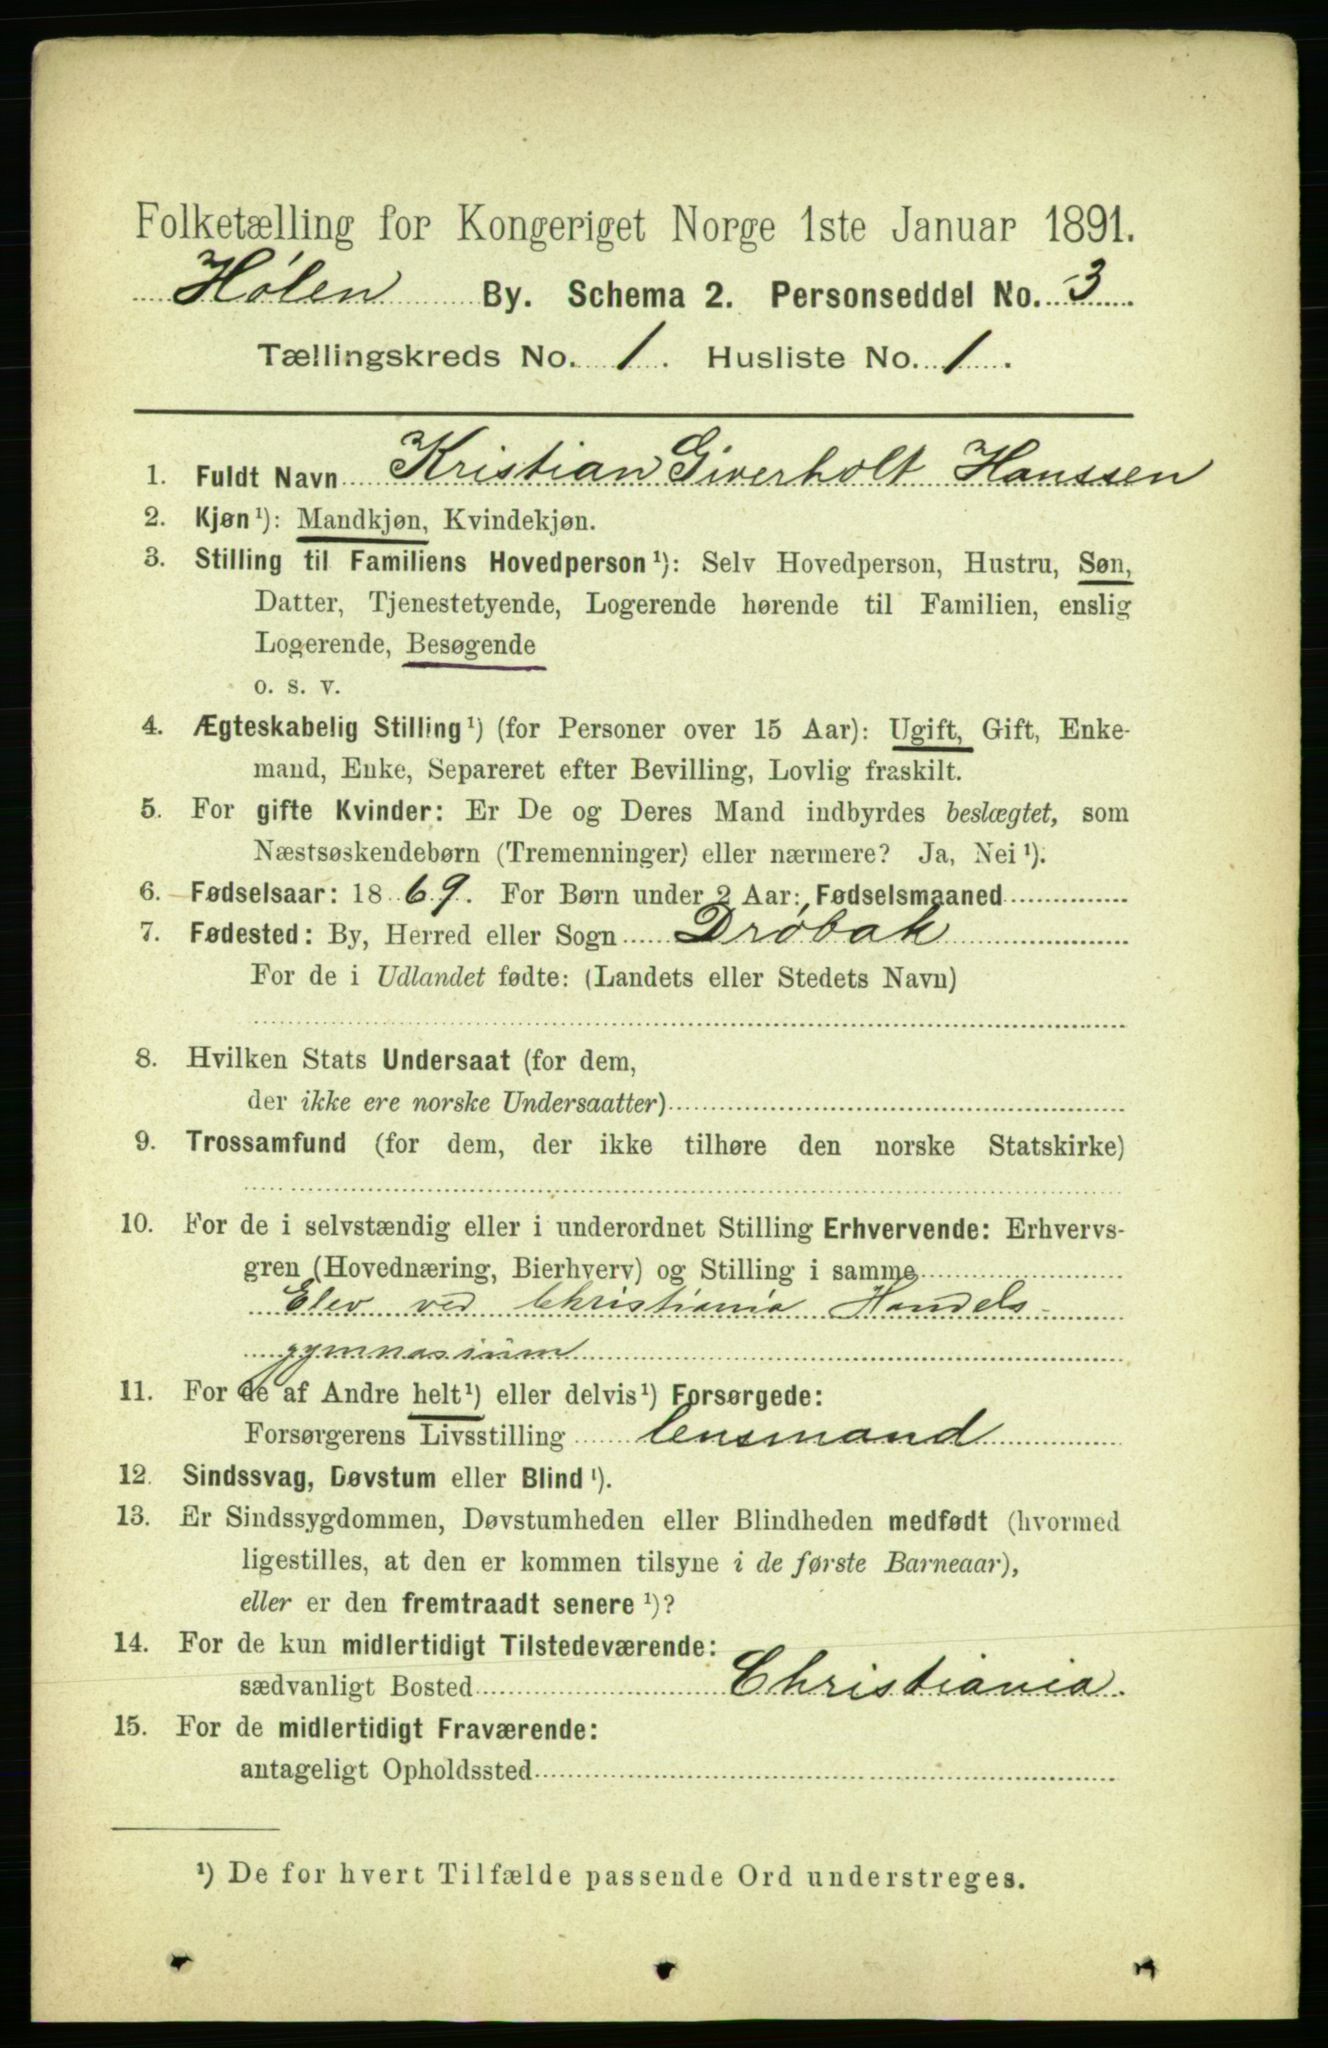 Folketælling for Kongeriget Norge 1ste Januar 1891.
Hølen By. Schema 2. Personseddel No. 3
Tællingskreds No. 1. Husliste No. 1.
1. Fuldt Navn Kristian Giverholt Hanssen
2. Kjøn ¹): Mandkjøn, Kvindekjøn.
3. Stilling til Familiens Hovedperson ¹): Selv Hovedperson, Hustru, Søn,
Datter, Tjenestetyende, Logerende hørende til Familien, enslig
Logerende, Besøgende
o. s. v.
4. Ægteskabelig Stilling ¹) (for Personer over 15 Aar): Ugift, Gift, Enke-
mand, Enke, Separeret efter Bevilling, Lovlig fraskilt.
5. For gifte Kvinder: Er De og Deres Mand indbyrdes beslægtet, som
Næstsøskendebørn (Tremenninger) eller nærmere? Ja, Nei ¹).
6. Fødselsaar: 1869. For Børn under 2 Aar: Fødselsmaaned
7. Fødested: By, Herred eller Sogn Drøbak
For de i Udlandet fødte: (Landets eller Stedets Navn)
8. Hvilken Stats Undersaat (for dem,
der ikke ere norske Undersaatter)
9. Trossamfund (for dem, der ikke tilhøre den norske Statskirke)
10. For de i selvstændig eller i underordnet Stilling Erhvervende: Erhvervs-
gren (Hovednæring, Bierhverv) og Stilling i samme
Elev ved Christiania Handels-
gymnasium
11. For de af Andre helt ¹) eller delvis ¹) Forsørgede:
Forsørgerens Livsstilling lensmand
12. Sindssvag, Døvstum eller Blind ¹).
13. Er Sindssygdommen, Døvstumheden eller Blindheden medfødt (hvormed
ligestilles, at den er kommen tilsyne i de første Barneaar),
eller er den fremtraadt senere ¹)?
14. For de kun midlertidigt Tilstedeværende:
sædvanligt Bosted Christiania.
15. For de midlertidigt Fraværende:
antageligt Opholdssted
¹) De for hvert Tilfælde passende Ord understreges.